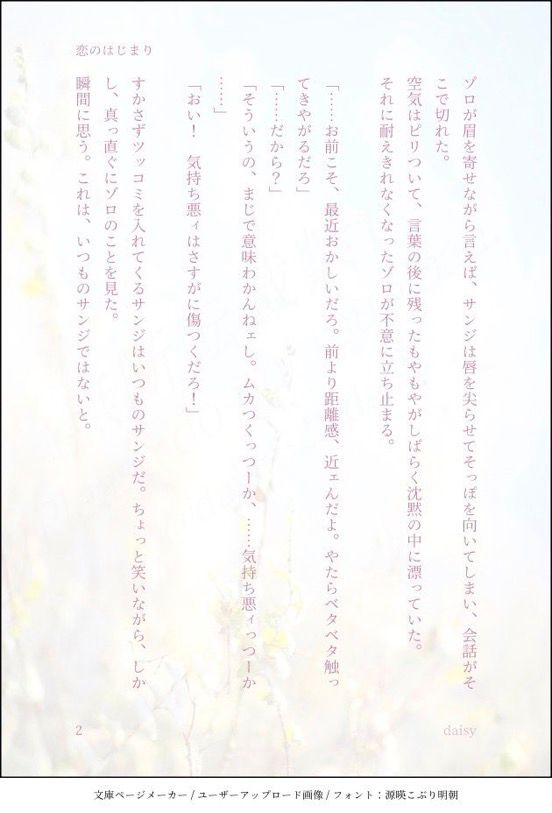 恋のはじまり
ゾロが眉を寄せながら言えば、サンジは唇を尖らせてそっぽを向いてしまい、会話がそ
こで切れた。
空気はピリついて、言葉の後に残ったもやもやがしばらく沈黙の中に漂っていた。
それに耐えきれなくなったゾロが不意に立ち止まる。
「……お前こそ、最近おかしいだろ。前より距離感、近ェんだよ。やたらベタベタ触っ
てきやがるだろ」
「……だから?」
「そういうの、まじで意味わかんねェし。ムカつくっつーか、……気持ち悪ィっつーか
……」
「おい! 気持ち悪ィはさすがに傷つくだろ!」
すかさずツッコミを入れてくるサンジはいつものサンジだ。ちょっと笑いながら、しか
し、真っ直ぐにゾロのことを見た。
瞬間に思う。これは、いつものサンジではないと。
2
daisy
文庫ページメーカー / ユーザーアップロード画像 / フォント:源暎こぶり明朝